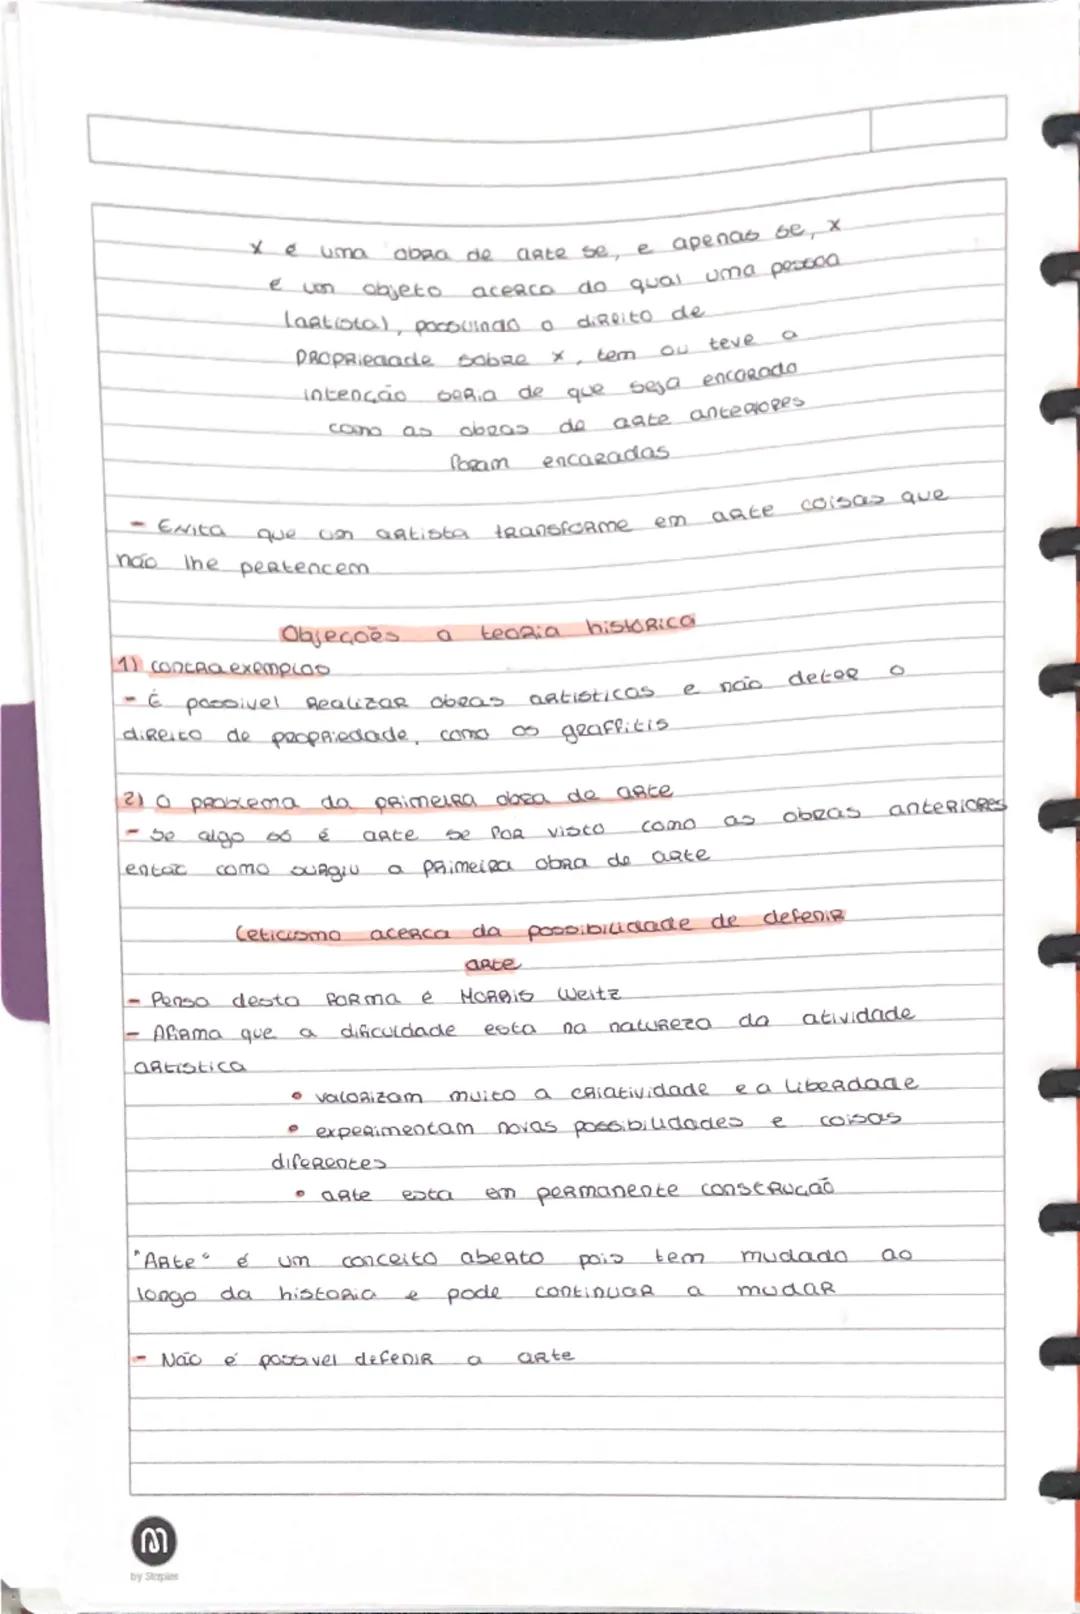 x é uma obra de arte se, e apenas se, x
é um objeto acerca do qual uma pessoa
(artista), possuindo o direito de
propriedade sobre x, tem ou teve a
intenção séria de que seja encarado
como as obras de arte anteriores
foram encaradas
- Evita que um artista transforme em arte coisas que
não lhe pertencem
Objeções a teoria histórica
1) contraexemplos
- É possivel realizar obras artisticas e não deter o
direito de propriedade, como os graffitis
2) O problema da primeira obra de arte
- Se algo só é arte se for visto como as obras anteriores
entao como surgiu a primeira obra de arte
Ceticismo acerca da possibilidade de defenir
arte
- Pensa desta forma é Morris Weitz
- Afirma que a dificuldade esta na natureza da atividade
artistica
• valorizam muito a criatividade e a liberdade
• experimentam novas possibilidades e coisas
diferentes
• arte esta em permanente construção
"Arte" é um conceito aberto pois tem mudado ao
longo da historia e pode continuar a mudar
- Não é possivel defenir a arte
by Staples